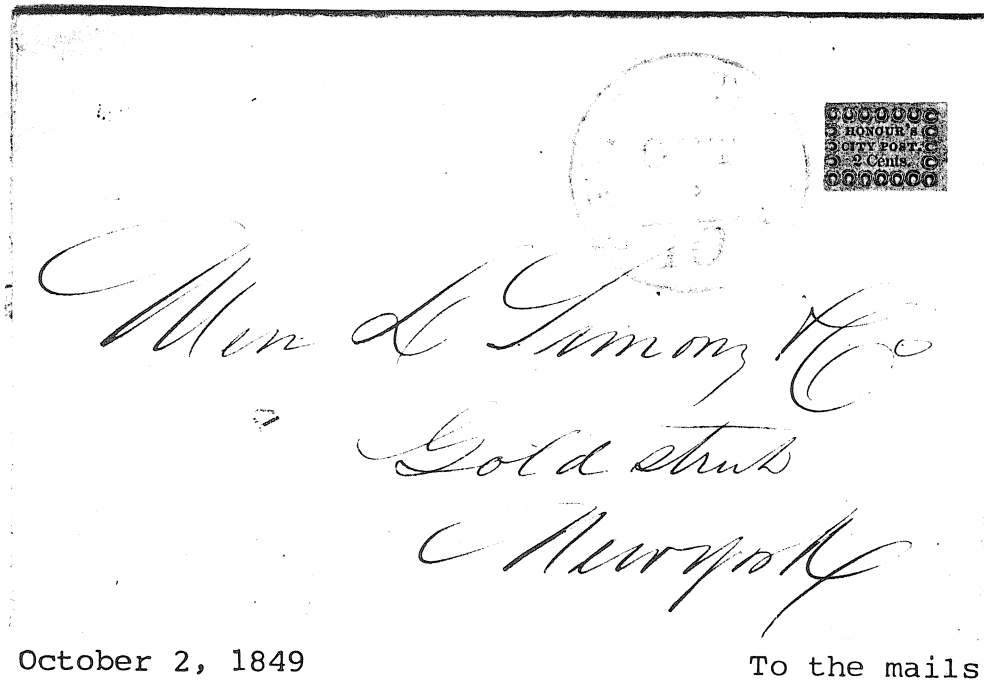 HONOUR'S
CITY POST.
2 Cents.
L Simons & Co
Gold street
New york
October 2, 1849
To the mails